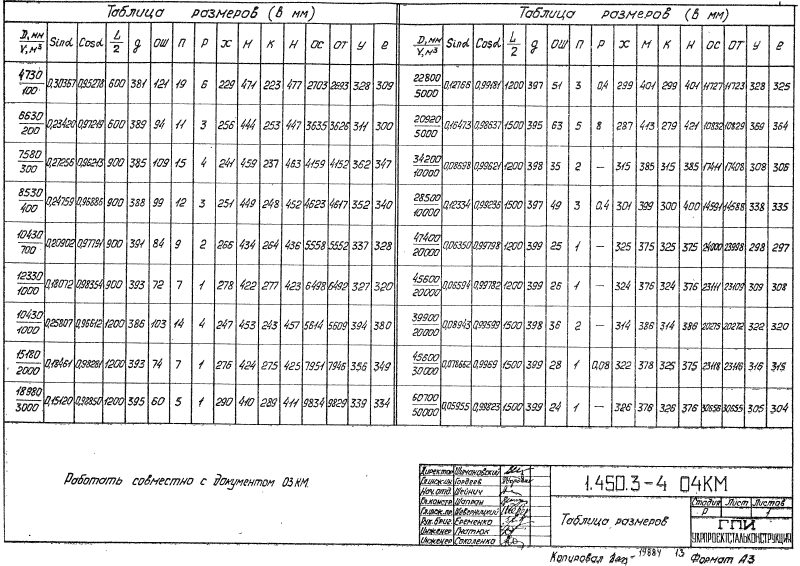 Таблица размеров (в мм)
D, мм / V, м³ Sinα Cosα L/2 g ОШ П Р Ж М К Н ОС ОТ У г
4730/100 0,30367 0,95278 600 381 121 19 6 229 471 223 477 2703 2693 328 309
8630/200 0,23420 0,97219 600 389 94 11 3 256 444 253 447 3635 3626 311 300
7580/300 0,27256 0,96213 900 385 109 15 4 241 459 237 463 4159 4152 362 347
8530/400 0,24759 0,96886 900 388 99 12 3 251 449 248 452 4623 4617 352 340
10430/700 0,20902 0,97791 900 391 84 9 2 266 434 264 436 5558 5552 337 328
12330/1000 0,18072 0,98354 900 393 72 7 1 278 422 277 423 6498 6492 327 320
10430/1000 0,25807 0,96612 1200 386 103 14 4 247 453 243 457 5614 5609 394 380
15180/2000 0,18461 0,98281 1200 393 74 7 1 276 424 275 425 7951 7946 356 349
18980/3000 0,15120 0,98850 1200 395 60 5 1 290 410 289 411 9834 9829 339 334
Таблица размеров (в мм)
D, мм / V, м³ Sinα Cosα L/2 g ОШ П Р Ж М К Н ОС ОТ У г
22800/5000 0,12766 0,99181 1200 397 51 3 0,4 299 401 299 401 11727 11723 328 325
20920/5000 0,16473 0,98637 1500 395 63 5 8 287 413 279 421 10832 10829 369 364
34200/10000 0,08698 0,99621 1200 398 35 2 — 315 385 315 385 17411 17408 308 306
28500/10000 0,12334 0,99236 1500 397 49 3 0.4 301 399 300 400 14591 14588 338 335
47400/20000 0,06350 0,99798 1200 399 25 1 — 325 375 325 375 24000 23998 298 297
45600/20000 0,06594 0,99782 1200 399 26 1 — 324 376 324 376 23111 23109 309 308
39900/20000 0,08943 0,99599 1500 398 36 2 — 314 386 314 386 20275 20272 322 320
45600/30000 0,078662 0,9969 1500 399 28 1 0,08 322 378 325 375 23118 23116 316 315
60700/50000 0,05955 0,99823 1500 399 24 1 — 326 376 326 376 30656 30655 305 304
Работать совместно с документом 03КМ.
Директор Шимановский
Гл.инж.ин. Гордеев
Нач.отд. Шейнич
Гл.констр. Шапран
Гл.инж.пр. Шеверницкий
Рук.бриг. Еременко
Инженер Гнатюк
Инженер Соколенко
1.450.3-4 04КМ
Таблица размеров
Стадия Лист Листов
Р 1
ГПИ
УКРПРОЕКТСТАЛЬКОНСТРУКЦИЯ
Копировал 19884 13 Формат А3